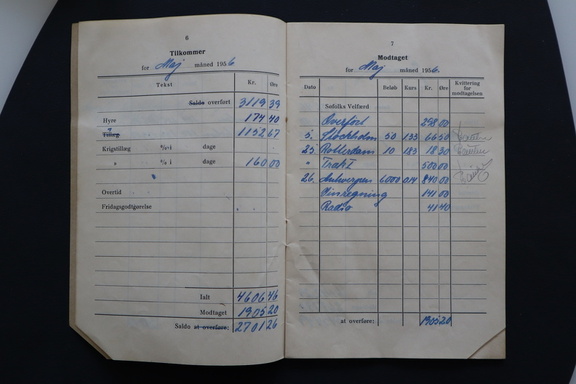 6
Tilkommer
for Maj måned 1956
Tekst Kr. Øre
Saldo overført 3119 39
Hyre 174 40
Tillæg 1152 67
Krigstillæg dage
" dage 160 00
Overtid
Fridagsgodtgørelse
Ialt 4606 46
Modtaget 1905 20
Saldo at overføre: 2701 26
7
Modtaget
for Maj måned 1956
Dato Beløb Kurs Kr. Øre Kvittering for modtagelsen
Søfolks Velfærd
Overført 298 00
5. Stockholm 50 133 66 50
25 Rotterdam 10 183 18 30
" Trukt 500 00
26. Antwerpen 6000 014 840 00
Hinregning 141 00
Radio 41 40
at overføre: 1905 20